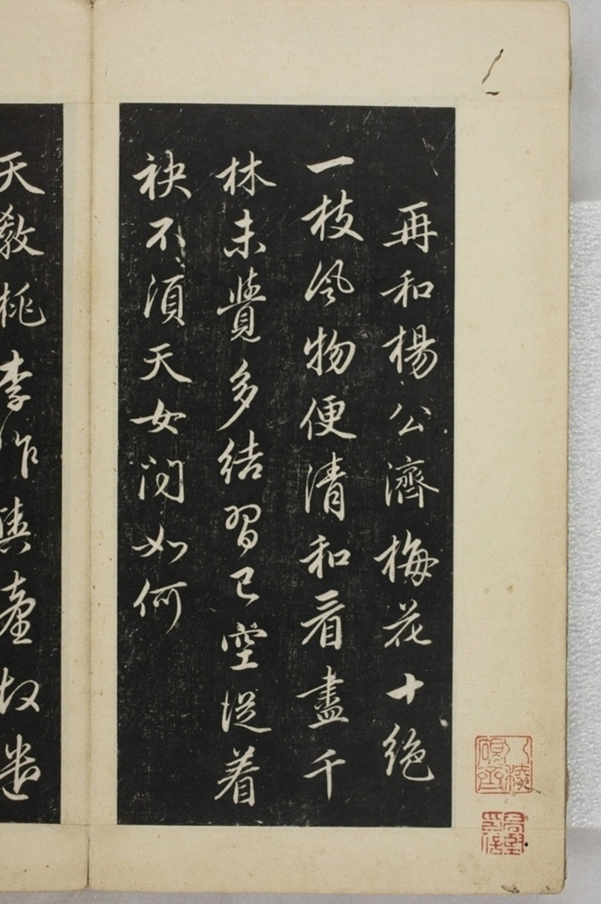 再和楊公濟梅花十絶
一枝風物便清和看盡千
林未覺多結習已空從着
袂不須天女問如何
天教桃李作輿臺故遣